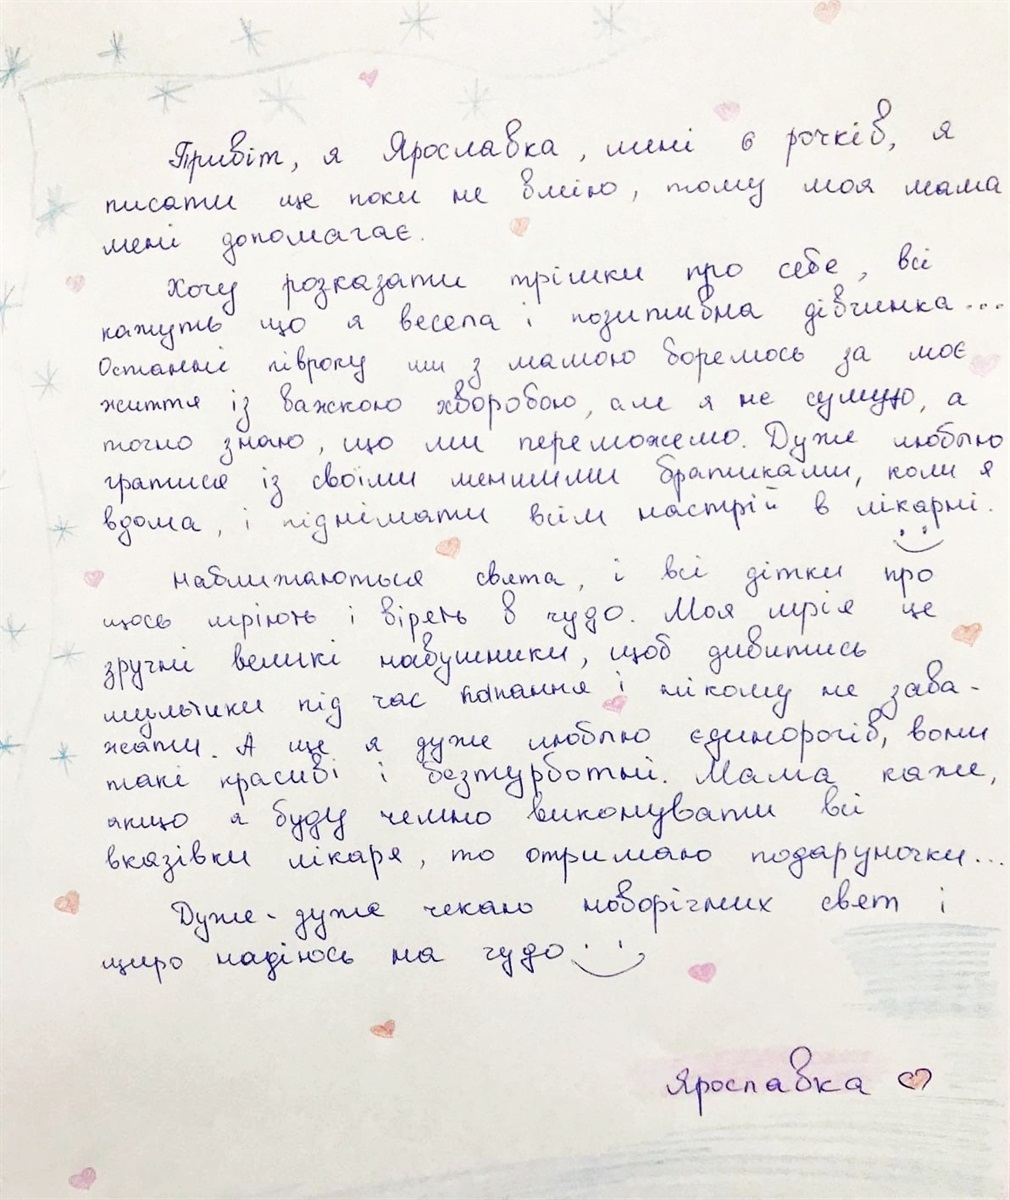 Привіт, я Ярославка, мені 6 рочків, я
писати ще поки не вмію, тому моя мама
мені допомагає.
Хочу розказати трішки про себе, всі
кажуть що я весела і позитивна дівчинка...
Останні півроку ми з мамою боремось за моє
життя із важкою хворобою, але я не сумую, а
точно знаю, що ми переможемо. Дуже люблю
гратися із своїми меншими братиками, коли я
вдома, і піднімати всім настрій в лікарні.
Наближаються свята, і всі дітки про
щось мріють і вірять в чудо. Моя мрія це
зручні великі навушники, щоб дивитись
мультики під час капання і нікому не зава-
жати. А ще я дуже люблю єдинорогів, вони
такі красиві і безтурботні. Мама каже,
якщо я буду чемно виконувати всі
вказівки лікаря, то отримаю подаруночки...
Дуже-дуже чекаю новорічних свят і
щиро надіюсь на чудо
Ярославка